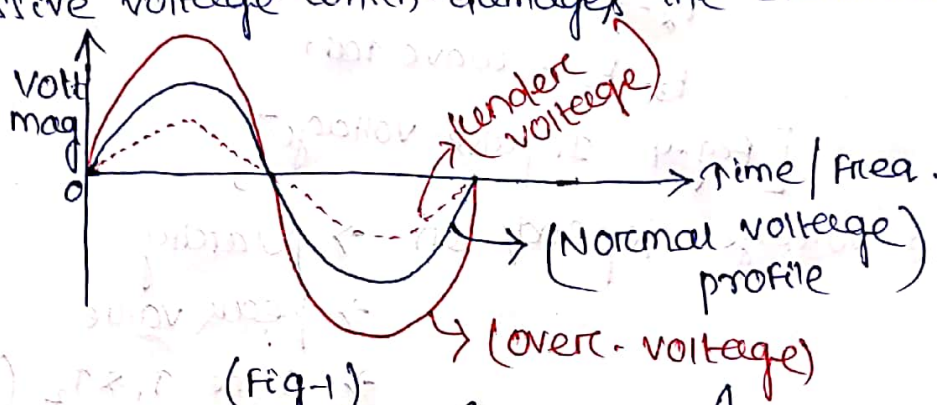 voltage which damages the
Volt
mag
0
(under
voltage)
Time / Freq.
(Normal voltage)
profile
(over-voltage)
(Fig-1)-